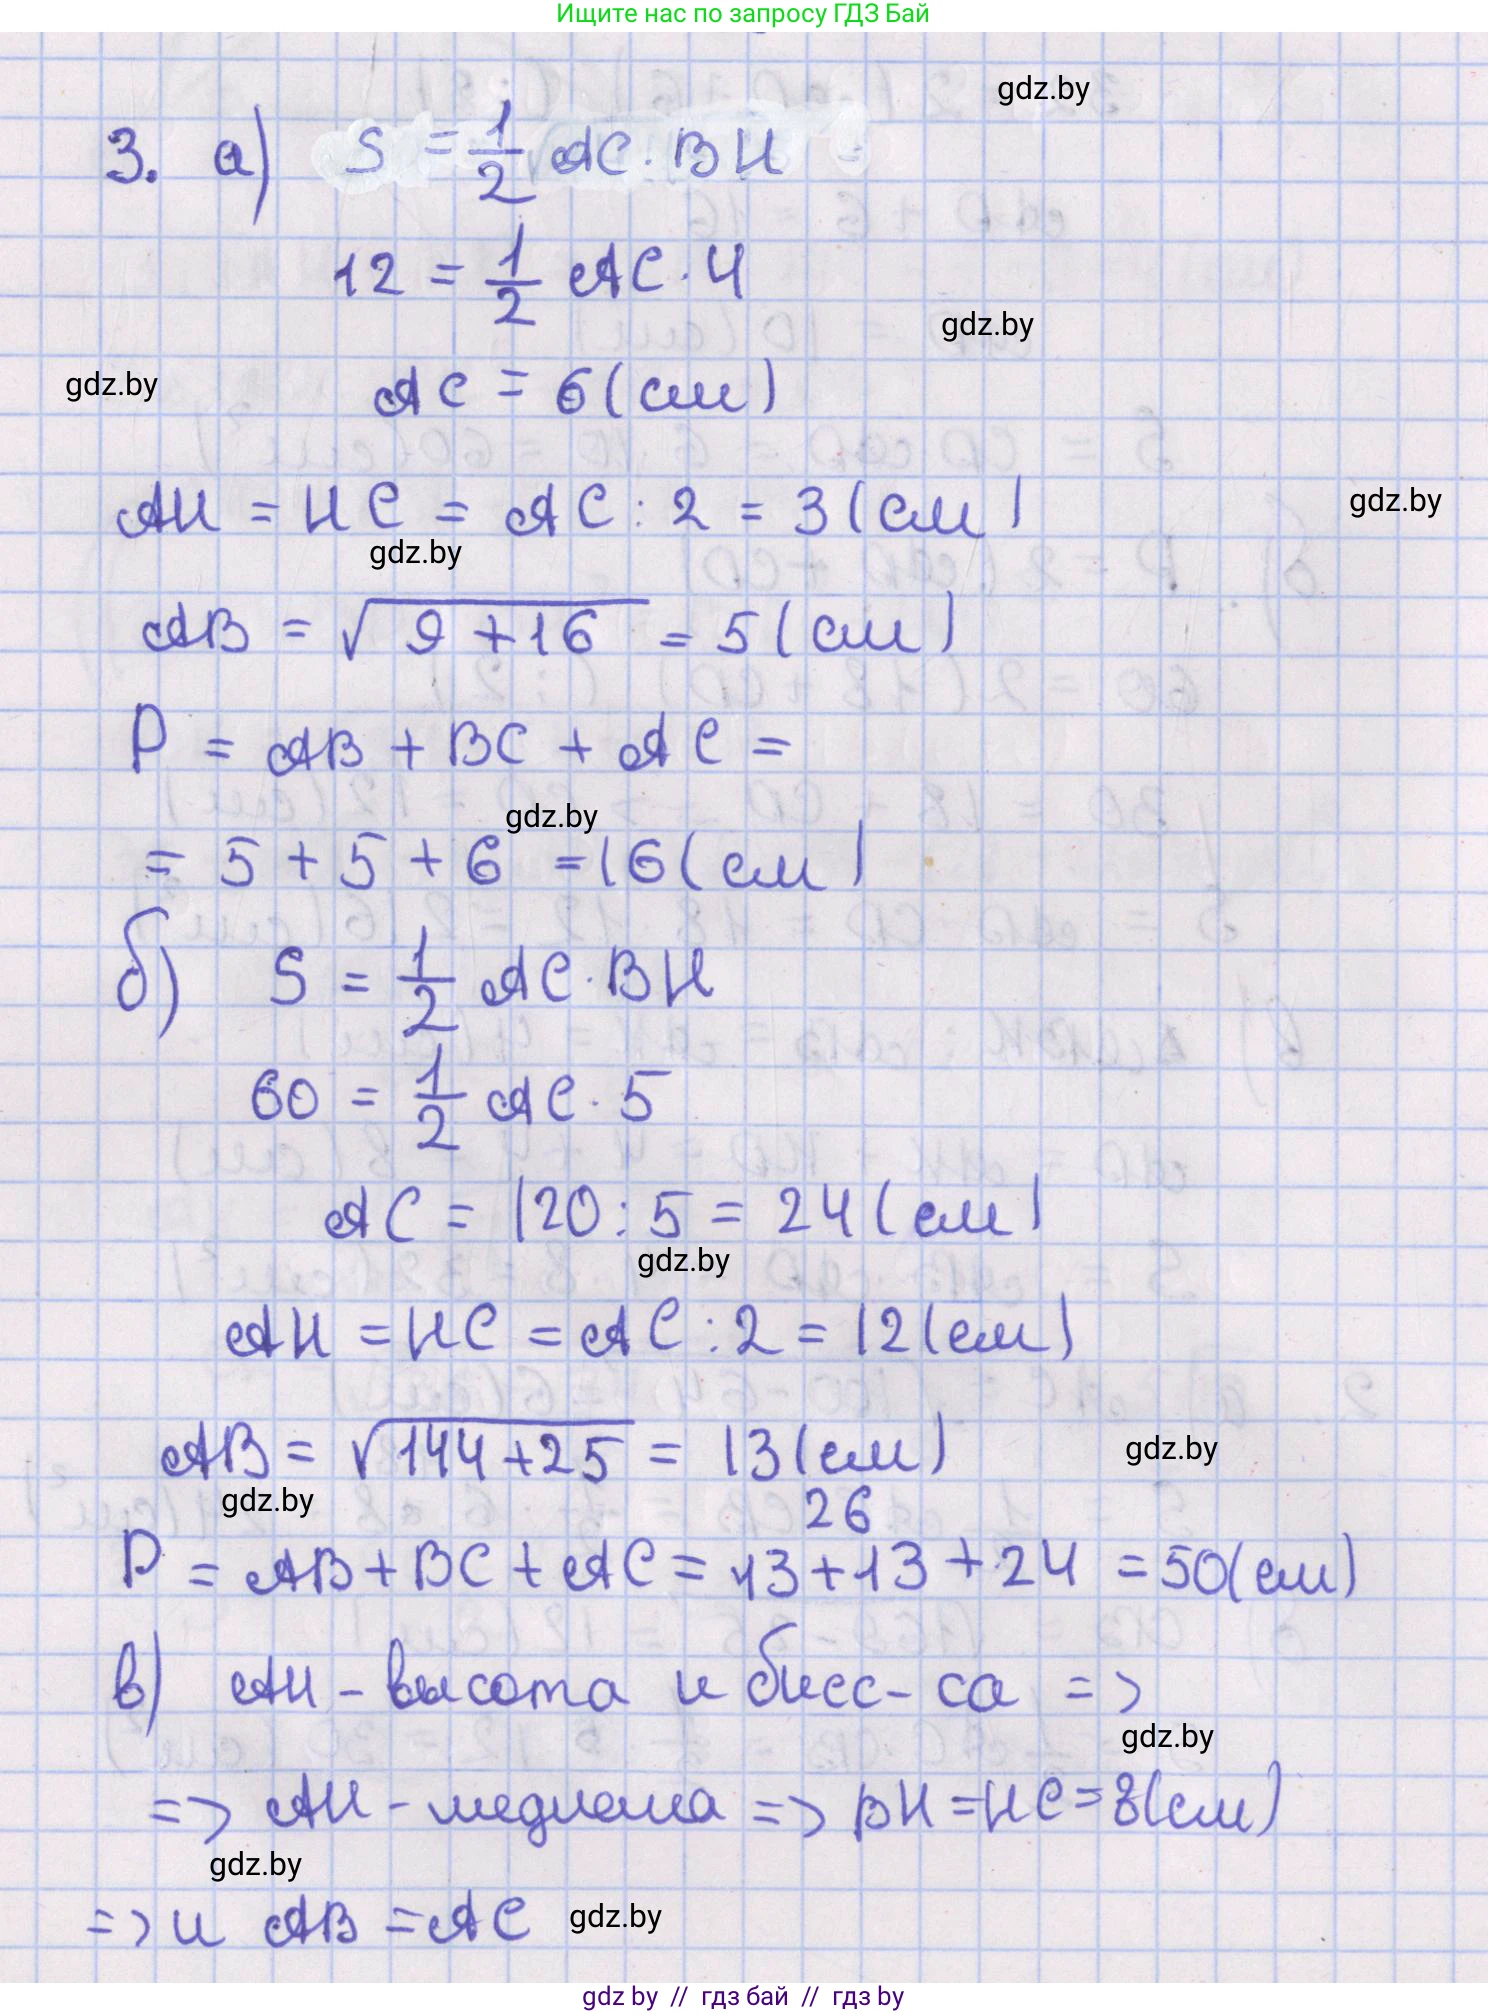 Ищите нас по запросу ГДЗ Бай
gdz.by
3. а) S = 1/2 AC · BH =
12 = 1/2 AC · 4
gdz.by
gdz.by
AC = 6 (см)
AH = HC = AC : 2 = 3 (см)
gdz.by
gdz.by
AB = √9 + 16 = 5 (см)
P = AB + BC + AC =
gdz.by
= 5 + 5 + 6 = 16 (см)
б) S = 1/2 AC · BH
60 = 1/2 AC · 5
AC = 120 : 5 = 24 (см)
gdz.by
AH = HC = AC : 2 = 12 (см)
AB = √144 + 25 = 13 (см)
gdz.by
gdz.by
26
P = AB + BC + AC = 13 + 13 + 24 = 50 (см)
в) AH - высота и бисс-са =>
gdz.by
=> AH - медиана => BH = HC = 8 (см)
gdz.by
=> и AB = AC
gdz.by
gdz by // гдз бай // гдз by